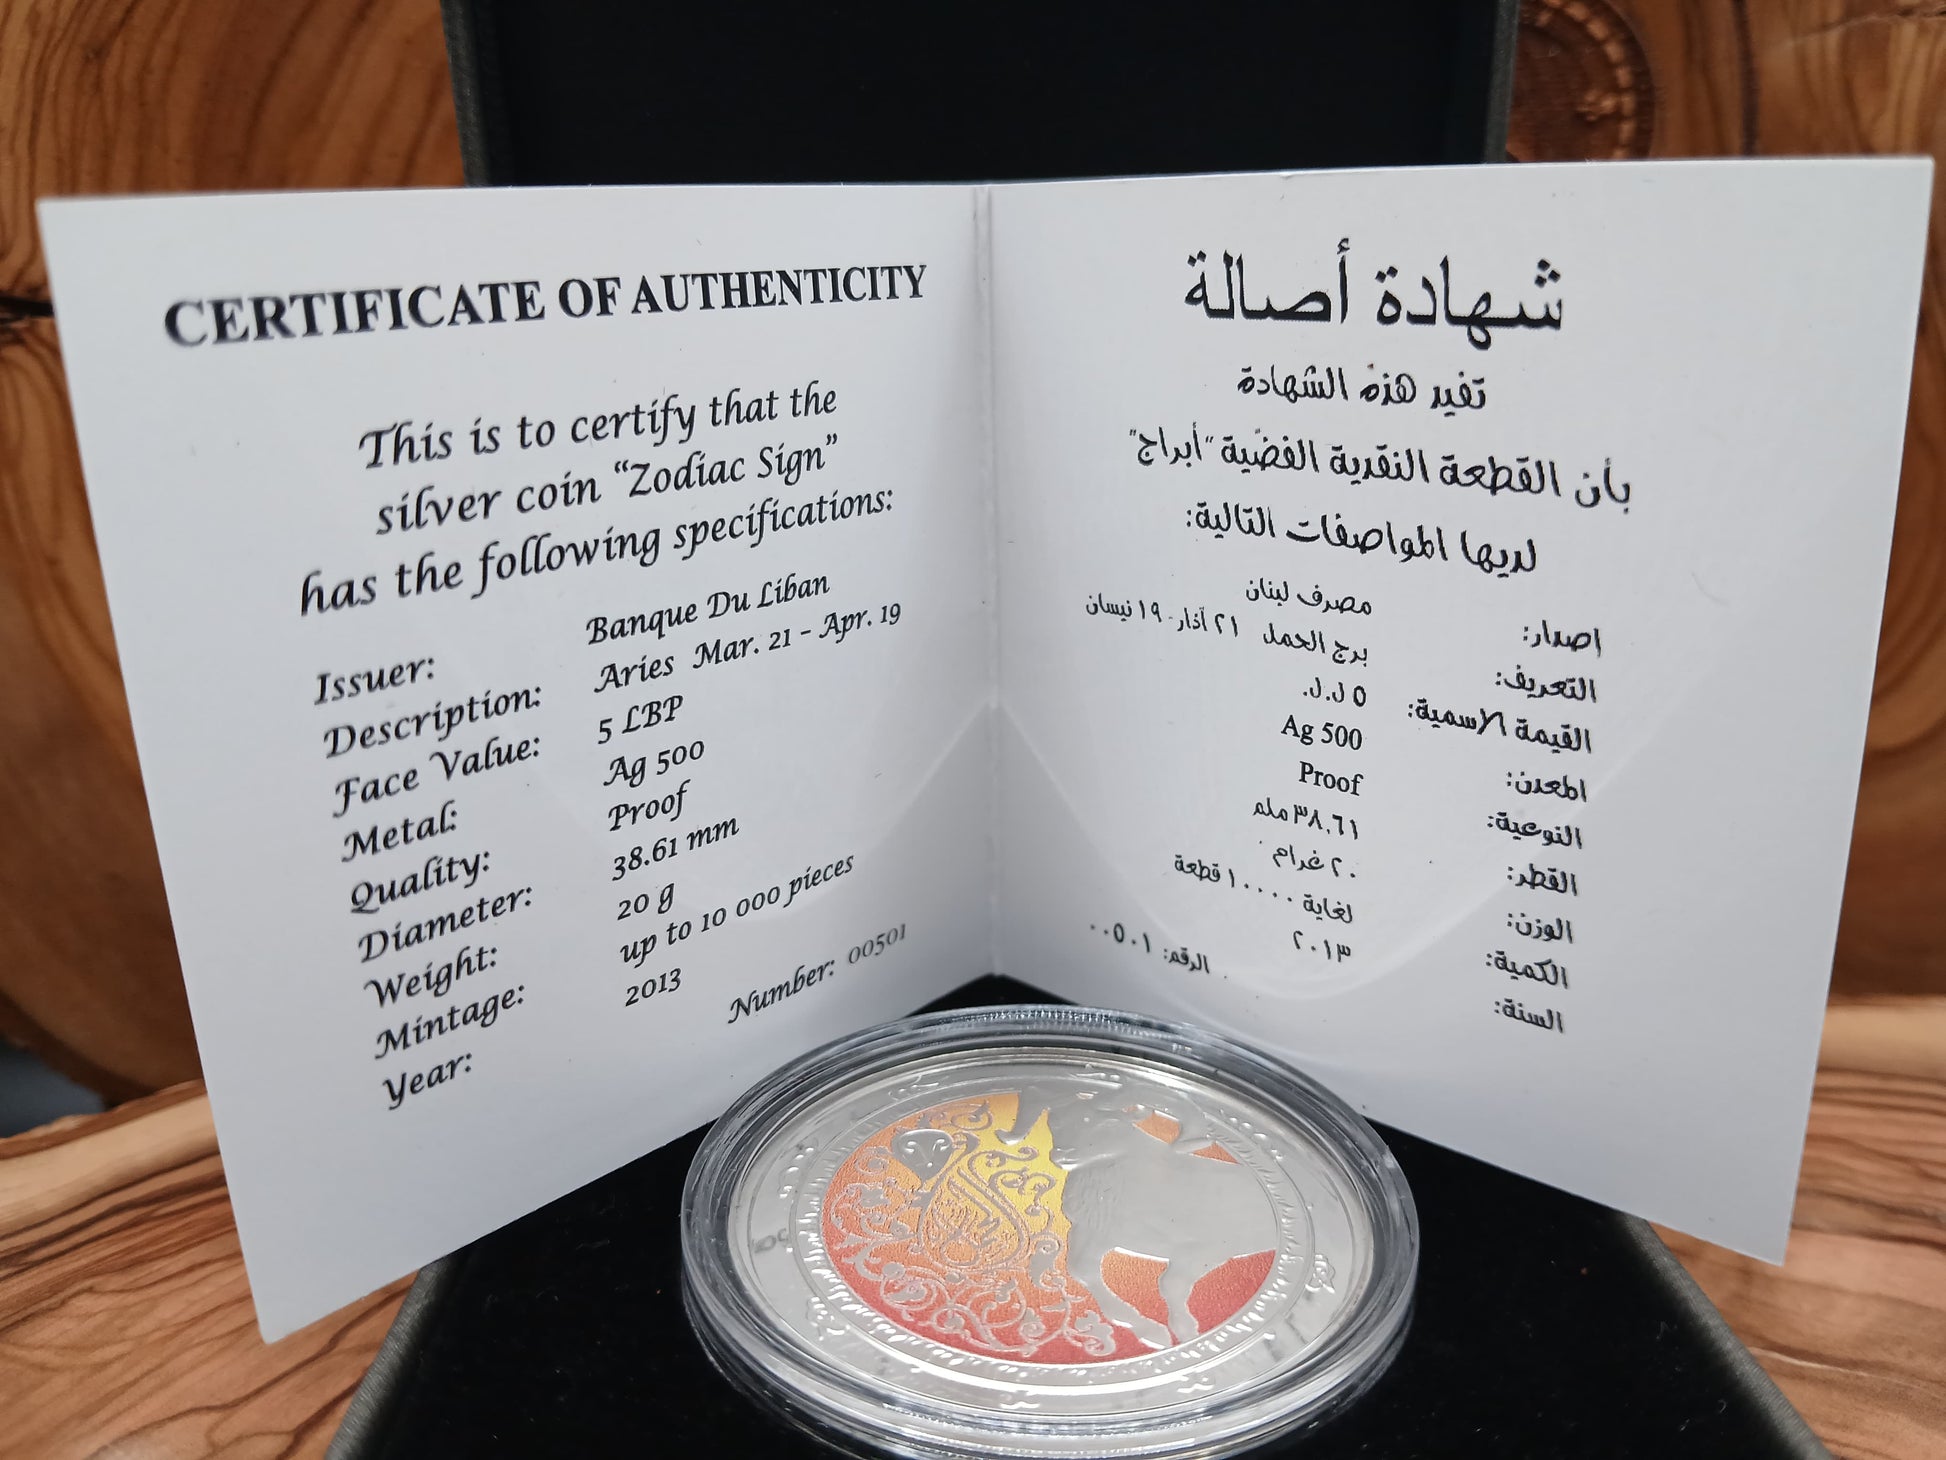 CERTIFICATE OF AUTHENTICITY
This is to certify that the
silver coin “Zodiac Sign”
has the following specifications:
Issuer: Banque Du Liban
Description: Aries Mar. 21 - Apr. 19
Face Value: 5 LBP
Metal: Ag 500
Quality: Proof
Diameter: 38.61 mm
Weight: 20 g
Mintage: up to 10 000 pieces
Year: 2013
Number: 00501
شهادة أصالة
تفيد هذه الشهادة
بأن القطعة النقدية الفضية "أبراج"
لديها المواصفات التالية:
اصدار: مصرف لبنان
التعريف: برج الحمل ٢١ آذار - ١٩ نيسان
القيمة الاسمية: ٥ ل.ل.
المعدن: Ag 500
النوعية: Proof
القطر: ٣٨,٦١ ملم
الوزن: ٢٠ غرام
الكمية: لغاية ١٠٠٠٠ قطعة
السنة: ٢٠١٣
الرقم: ٠٠٥٠١